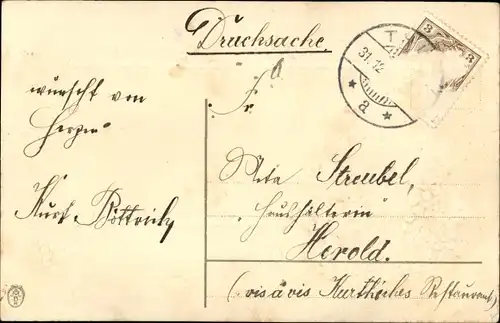 Drucksache
T
31.12
* a *
3 3
wünscht von
Herzen
Kurt Böttrich
Fr.
Ida Streubel,
Haushälterin
Herold.
(vis à vis Kurthiches Restaurant)